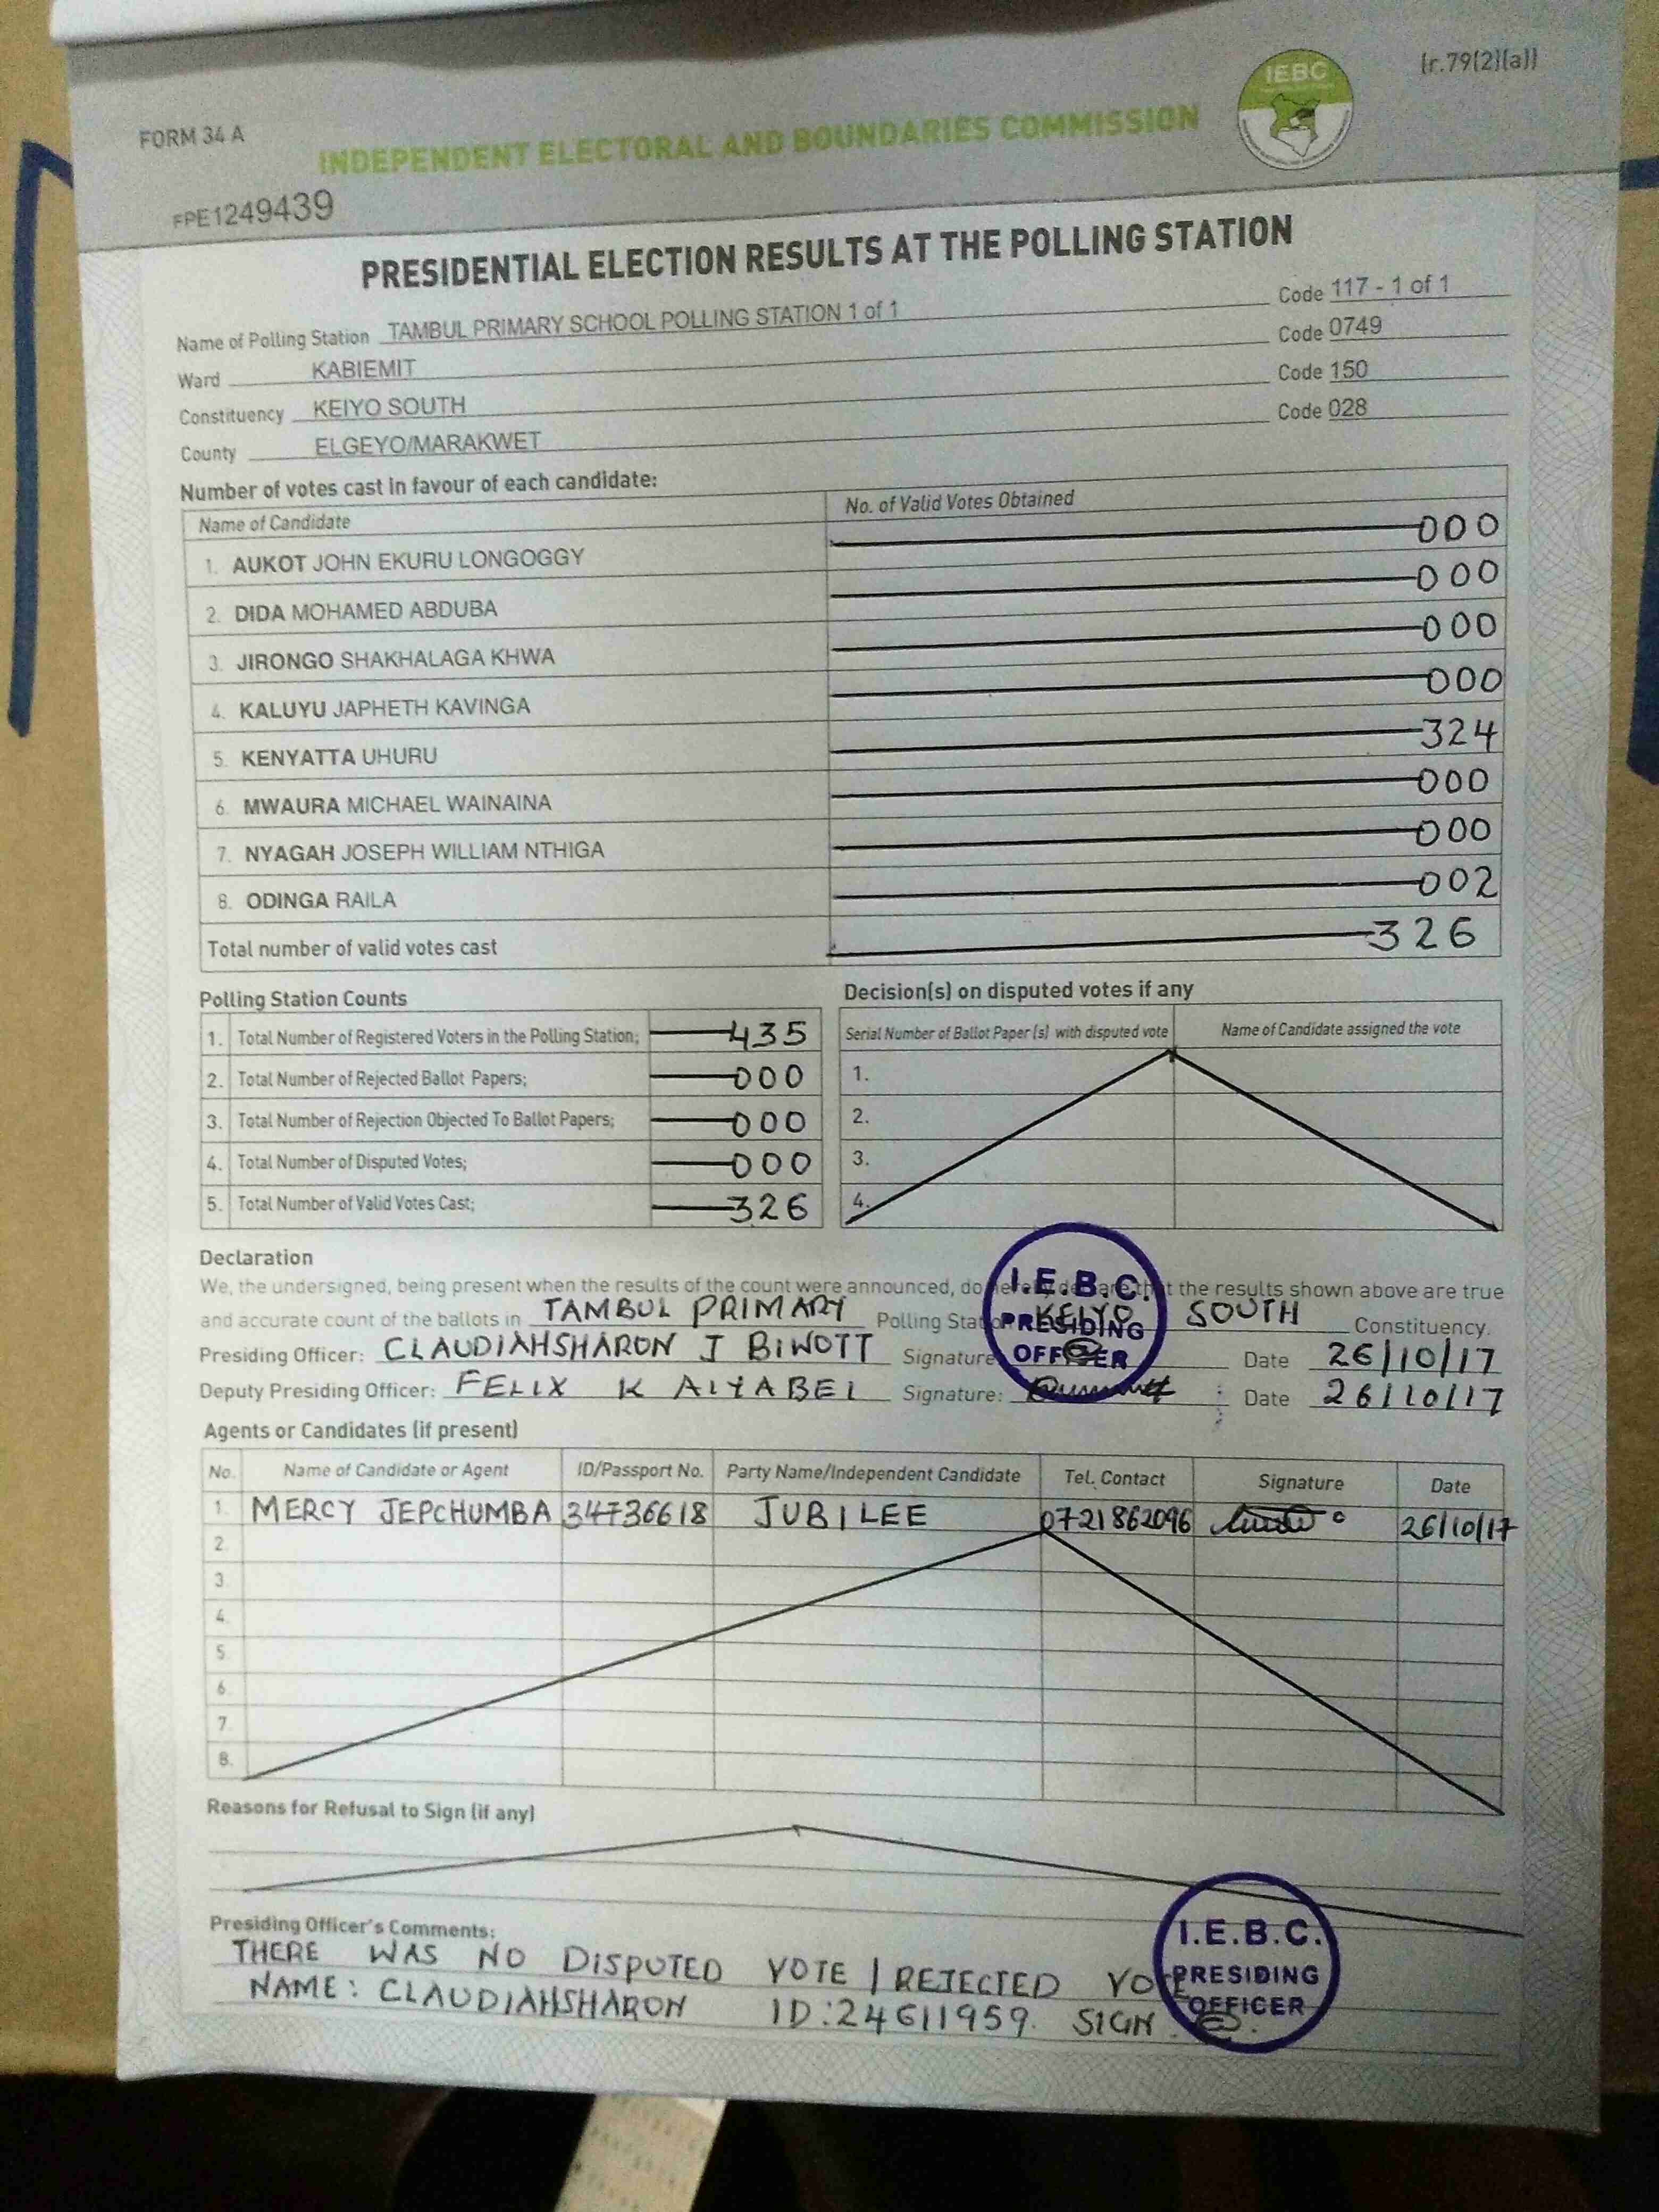 (r.79(2)(a))
IEBC
FORM 34 A
INDEPENDENT ELECTORAL AND BOUNDARIES COMMISSION
FPE1249439
PRESIDENTIAL ELECTION RESULTS AT THE POLLING STATION
Name of Polling Station TAMBUL PRIMARY SCHOOL POLLING STATION 1 of 1 Code 117 - 1 of 1
Ward KABIEMIT Code 0749
Constituency KEIYO SOUTH Code 150
County ELGEYO/MARAKWET Code 028
Number of votes cast in favour of each candidate:
Name of Candidate No. of Valid Votes Obtained
1. AUKOT JOHN EKURU LONGOGGY 000
2. DIDA MOHAMED ABDUBA 000
3. JIRONGO SHAKHALAGA KHWA 000
4. KALUYU JAPHETH KAVINGA 000
5. KENYATTA UHURU 324
6. MWAURA MICHAEL WAINAINA 000
7. NYAGAH JOSEPH WILLIAM NTHIGA 000
8. ODINGA RAILA 002
Total number of valid votes cast 326
Polling Station Counts
1. Total Number of Registered Voters in the Polling Station; 435
2. Total Number of Rejected Ballot Papers; 000
3. Total Number of Rejection Objected To Ballot Papers; 000
4. Total Number of Disputed Votes; 000
5. Total Number of Valid Votes Cast; 326
Decision(s) on disputed votes if any
Serial Number of Ballot Paper (s) with disputed vote Name of Candidate assigned the vote
1.
2.
3.
4.
Declaration
We, the undersigned, being present when the results of the count were announced, do hereby declare that the results shown above are true
and accurate count of the ballots in TAMBUL PRIMARY Polling Station KEIYO SOUTH Constituency.
Presiding Officer: CLAUDIAHSHARON J BIWOTT Signature Date 26/10/17
Deputy Presiding Officer: FELIX K ALYABEI Signature: Date 26/10/17
I.E.B.C.
PRESIDING
OFFICER
Agents or Candidates (if present)
No. Name of Candidate or Agent ID/Passport No. Party Name/Independent Candidate Tel. Contact Signature Date
1. MERCY JEPCHUMBA 34736618 JUBILEE 0721862096 26/10/17
2.
3.
4.
5.
6.
7.
8.
Reasons for Refusal to Sign (if any)
Presiding Officer's Comments:
THERE WAS NO DISPUTED VOTE / REJECTED VOTE
NAME: CLAUDIAHSHARON ID:24611959. SIGN.
I.E.B.C.
PRESIDING
OFFICER